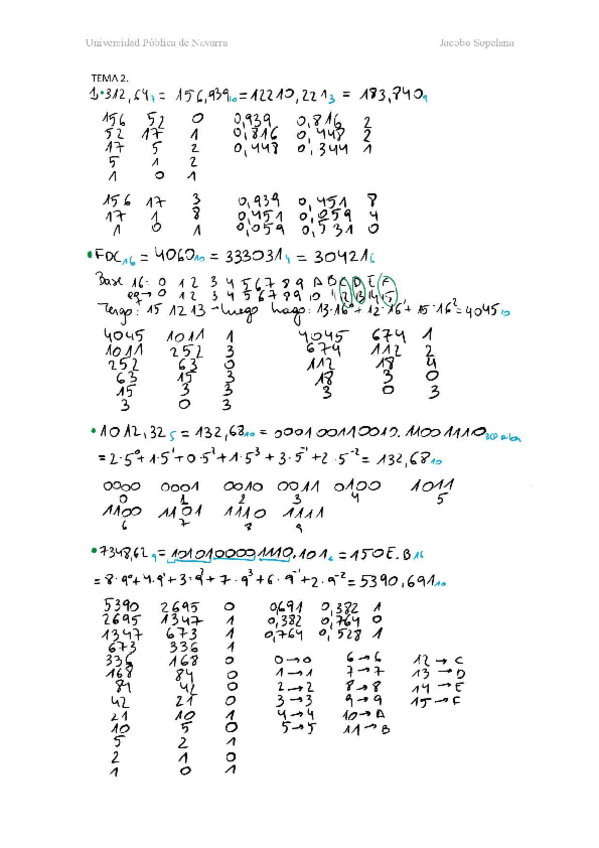 Universidad Pública de Navarra Jacobo Sopelana
TEMA 2.
1.•312,64₇ = 156,939₁₀ = 12210,221₃ = 183,840₉
156 52 0 0,939 0,816 2
52 17 1 0,816 0,448 2
17 5 2 0,448 0,344 1
5 1 2
1 0 1
156 17 3 0,939 0,451 8
17 1 8 0,451 0,059 4
1 0 1 0,059 0,531 0
•FDC₁₆ = 4060₁₀ = 333031₄ = 30421₆
Base 16: 0 1 2 3 4 5 6 7 8 9 A B C D E F
eq→ 0 1 2 3 4 5 6 7 8 9 10 11 12 13 14 15
Tengo: 15 12 13 → luego hago: 13·16⁰ + 12·16¹ + 15·16² = 4045₁₀
4045 1011 1 4045 674 1
1011 252 3 674 112 2
252 63 0 112 18 4
63 15 3 18 3 0
15 3 3 3 0 3
3 0 3
•1012,32₅ = 132,68₁₀ = 000100110010.11001110
= 2·5⁰ + 1·5¹ + 0·5² + 1·5³ + 3·5⁻¹ + 2·5⁻² = 132,68₁₀
0000 0001 0010 0011 0100 1011
0 1 2 3 4 5
1100 1101 1110 1111
6 7 8 9
•7348,62₉ = 1010100001110.101₂ = 150E.B₁₆
= 8·9⁰ + 4·9¹ + 3·9² + 7·9³ + 6·9⁻¹ + 2·9⁻² = 5390,691₁₀
5390 2695 0 0,691 0,382 1
2695 1347 1 0,382 0,764 0
1347 673 1 0,764 0,528 1
673 336 1
336 168 0 0→0 6→6 12→C
168 84 0 1→1 7→7 13→D
84 42 0 2→2 8→8 14→E
42 21 0 3→3 9→9 15→F
21 10 1 4→4 10→A
10 5 0 5→5 11→B
5 2 1
2 1 0
1 0 1